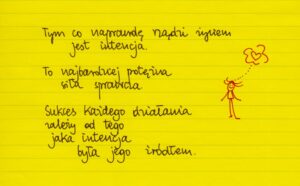 Tym co naprawdę rządzi życiem
jest intencja.
To najbardziej potężna
siła sprawcza
Sukces każdego działania
zależy od tego
jaka intencja
była jego źródłem.